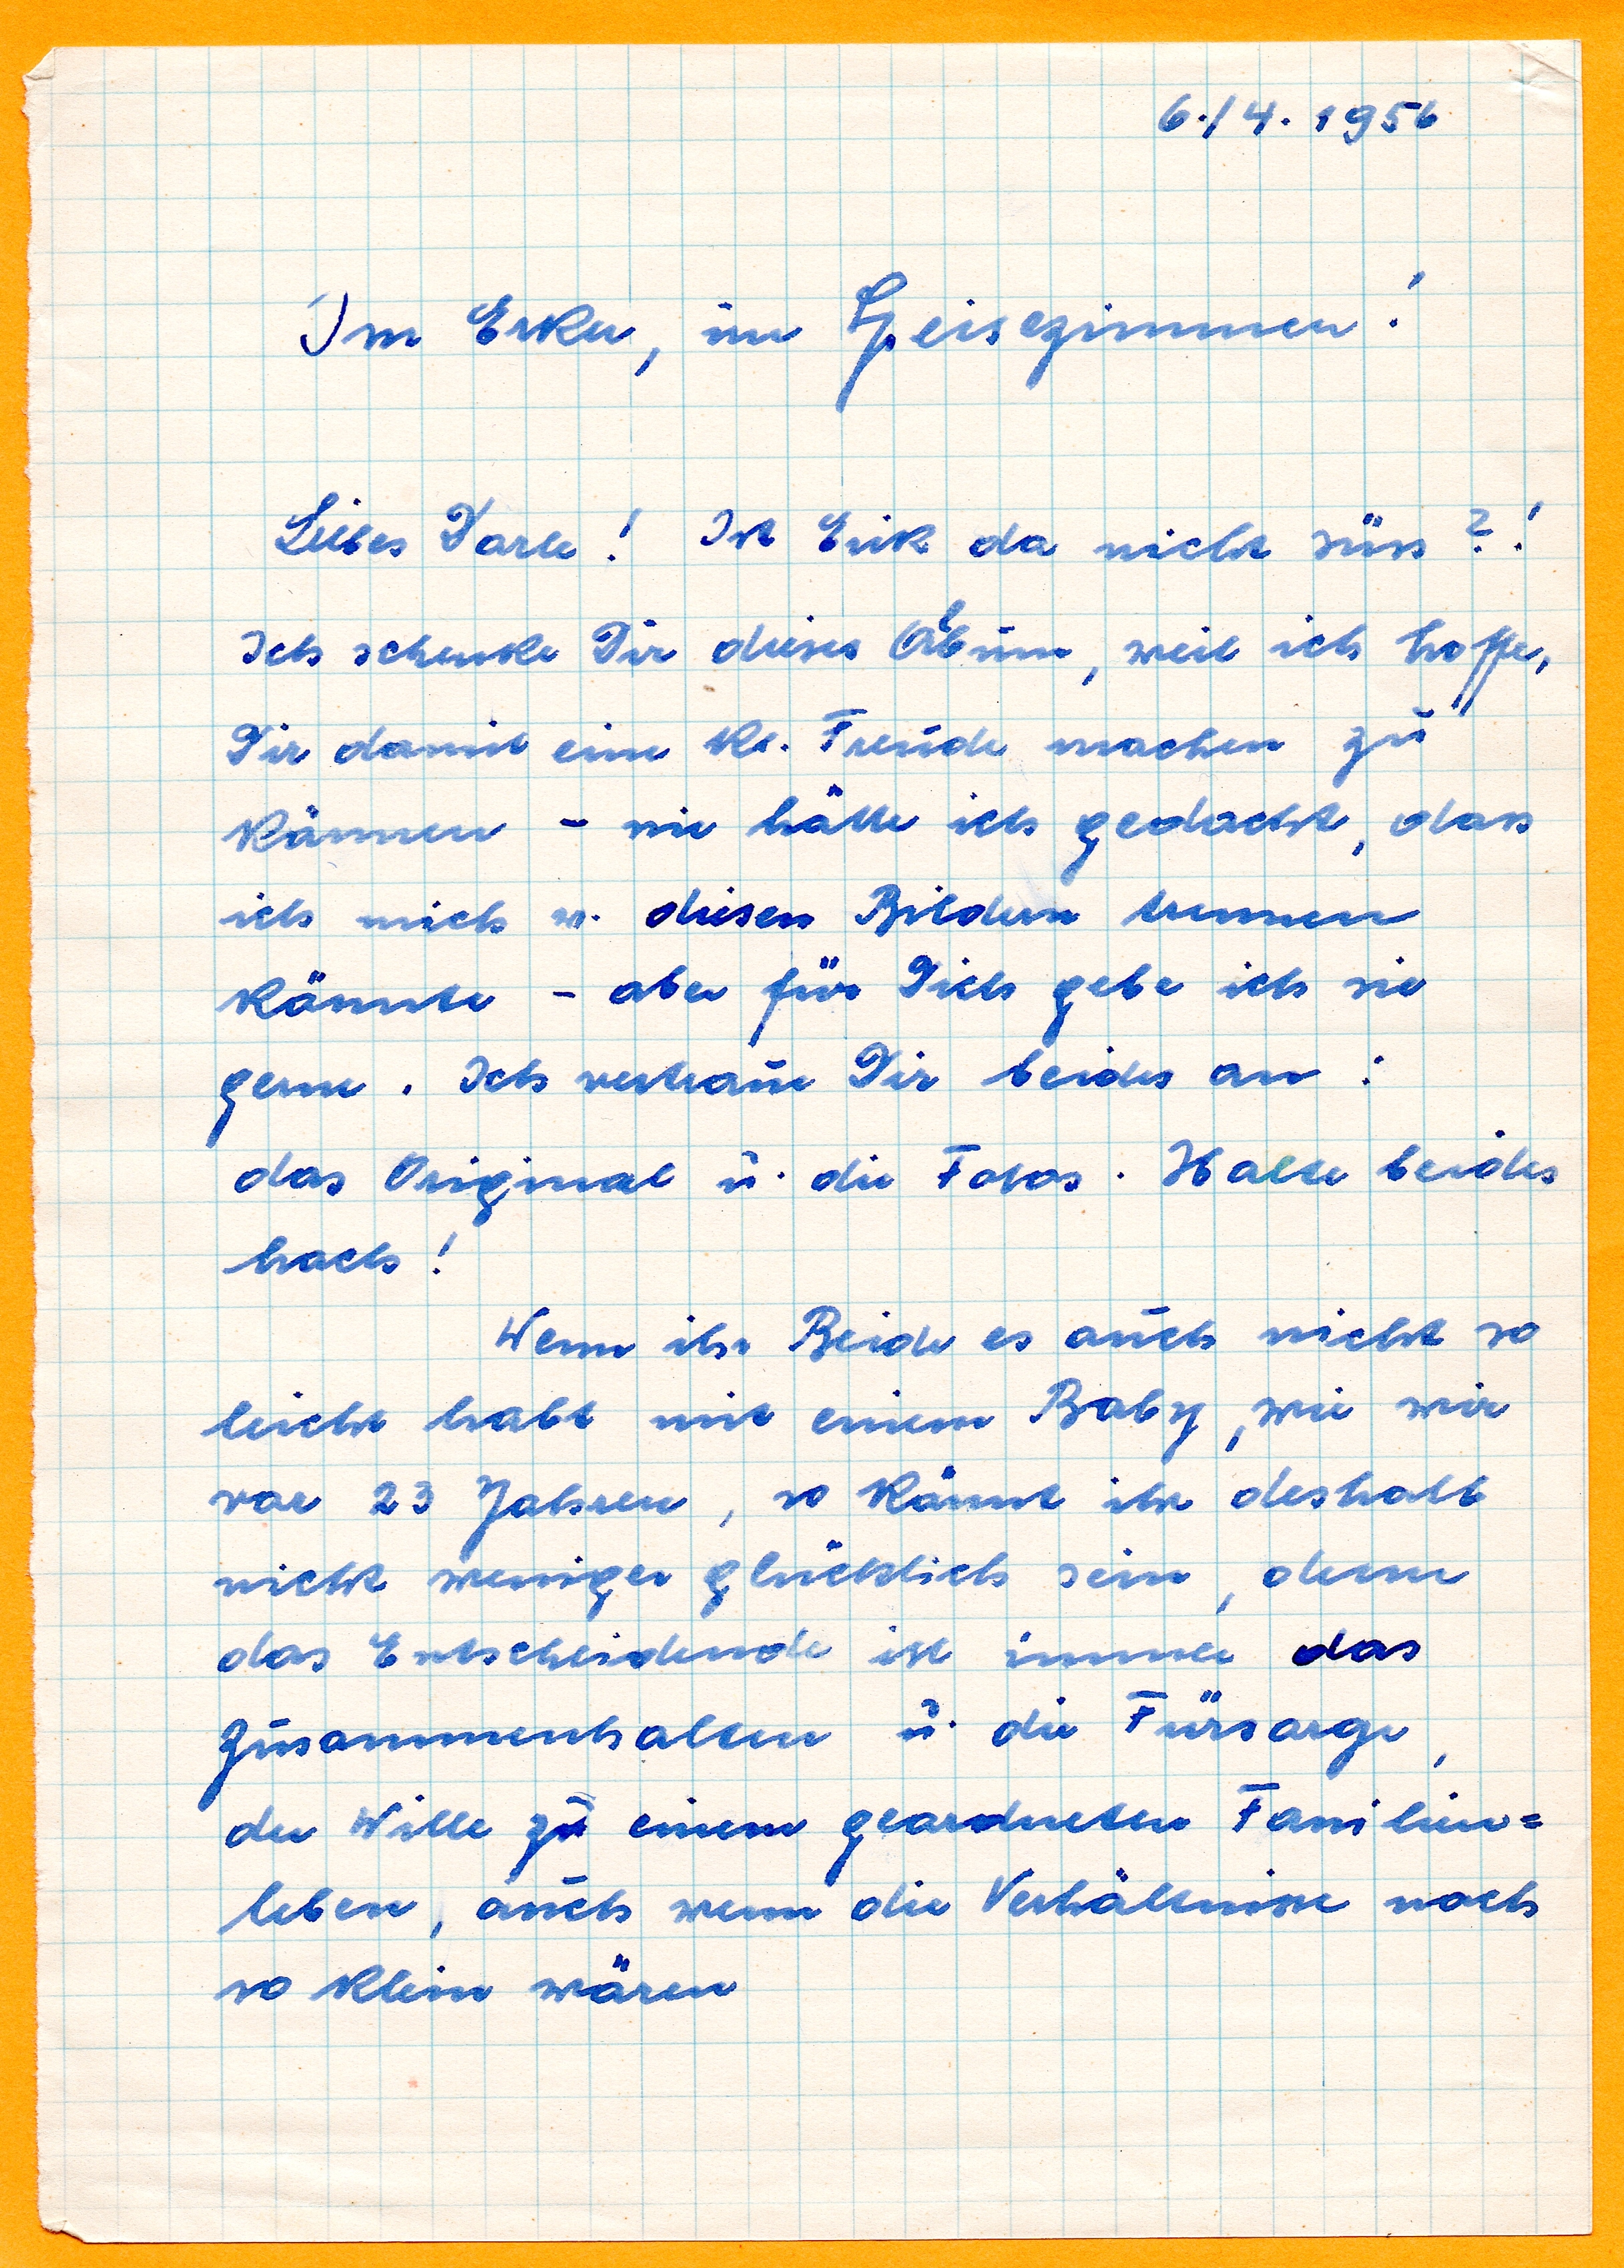 6./4. 1956
Im Erker, im Speisezimmer!
Liebes Dorle! Ist Erik da nicht süss?!
Ich schenke Dir dieses Album, weil ich hoffe,
Dir damit eine kl. Freude machen zu
können - nie hätte ich gedacht, dass
ich mich v. diesen Bildern trennen
könnte - aber für Dich gebe ich sie
gerne. Ich vertraue Dir beides an:
das Original u. die Fotos. Halte beides
hoch!
Wenn ihr Beide es auch nicht so
leicht habt mit einem Baby, wie wir
vor 23 Jahren, so könnt ihr deshalb
nicht weniger glücklich sein, denn
das Entscheidende ist immer das
Zusammenhalten u. die Fürsorge,
der Wille zu einem geordneten Familien=
leben, auch wenn die Verhältnisse noch
so klein wären